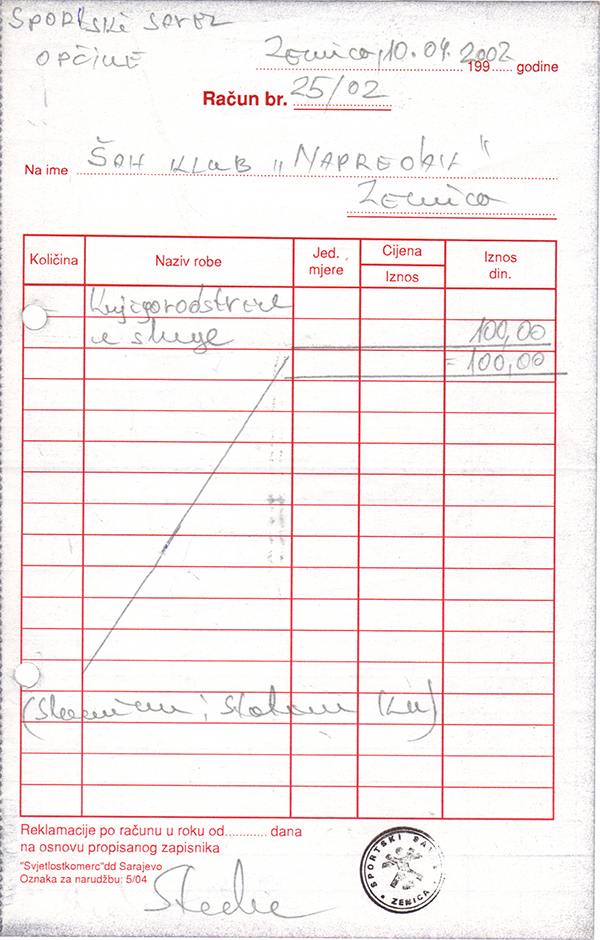 SPORTSKI SAVEZ
OPĆINE
Zenica, 10.04.2002
199 ...... godine
Račun br. 25/02
Na ime ŠAH KLUB „NAPREDAK"
Zenica
Količina
Naziv robe
Jed. mjere
Cijena
Iznos
Iznos din.
Knjigovodstvene
usluge
100,00
= 100,00
Reklamacije po računu u roku od............ dana
na osnovu propisanog zapisnika
"Svjetlostkomerc"dd Sarajevo
Oznaka za narudžbu: 5/04
SPORTSKI SAVEZ
ZENICA